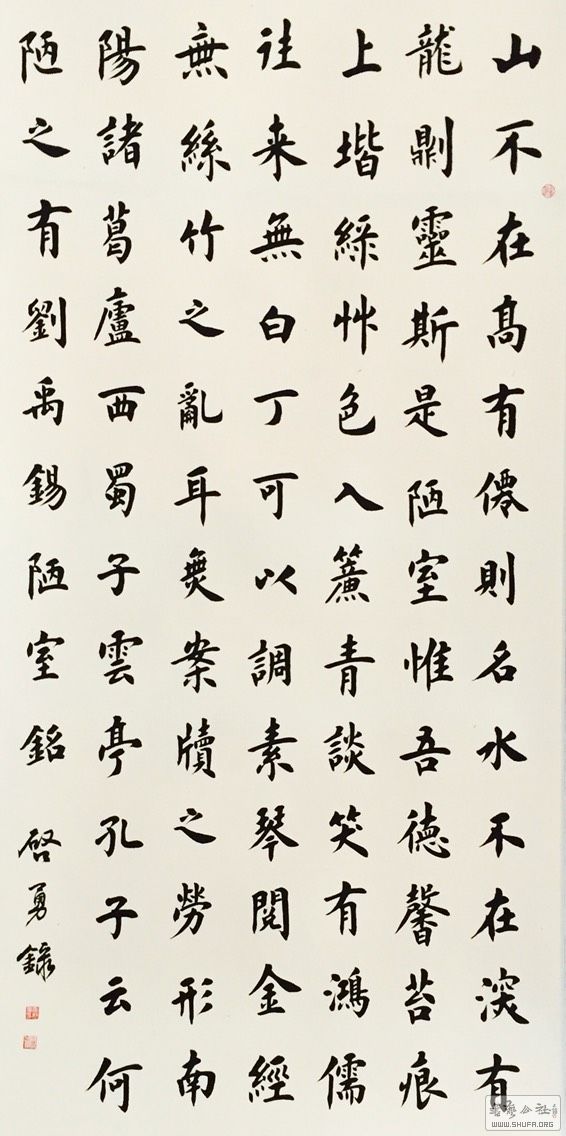 山不在髙有僊則名水不在深有
龍則靈斯是陋室惟吾德馨苔痕
上堦綠艸色入簾青談笑有鴻儒
往来無白丁可以調素琴閱金經
無絲竹之亂耳無案牘之勞形南
陽諸葛廬西蜀子雲亭孔子云何
陋之有劉禹錫陋室銘 啓勇録
公社
WWW.SHUFA.ORG